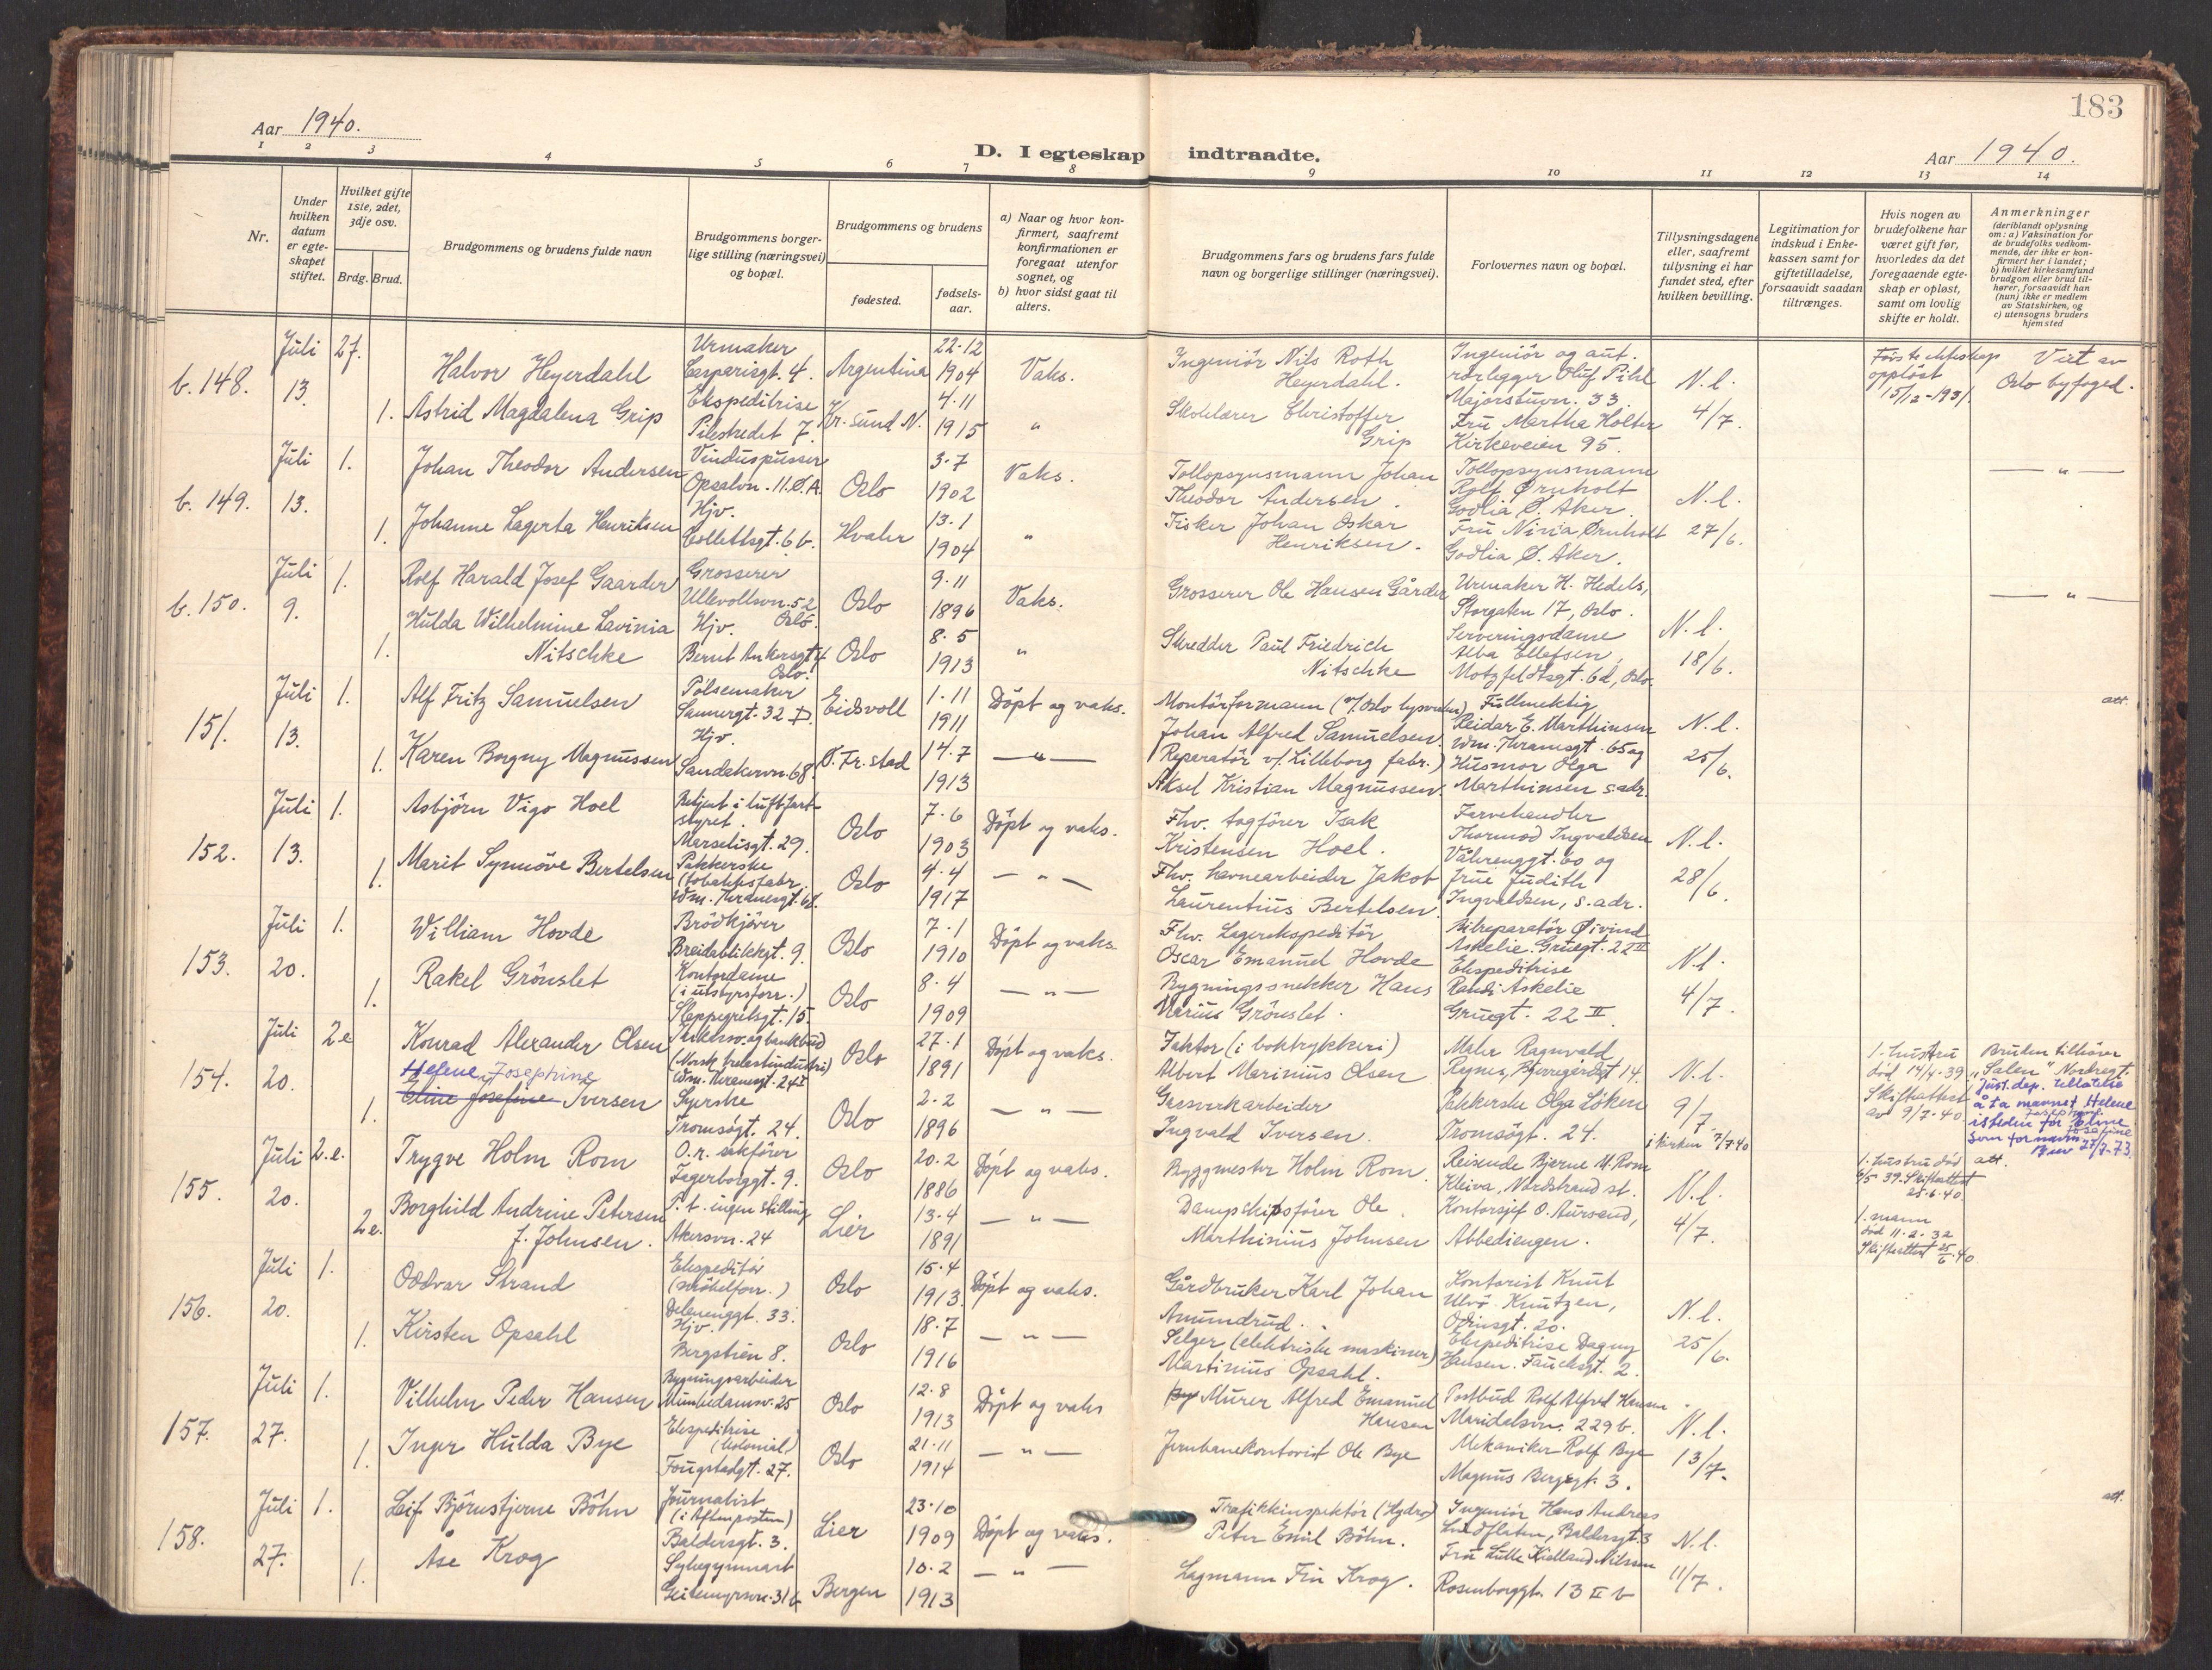 183
Aar 1940.
D. I egteskap indtraadte.
Aar 1940.
1 2 3 4 5 6 7 8 9 10 11 12 13 14
Nr.
Under hvilken datum er egte-skapet stiftet.
Hvilket gifte 1ste, 2det, 3dje osv.
Brdg. Brud.
Brudgommens og brudens fulde navn
Brudgommens borger-lige stilling (næringsvei) og bopæl.
Brudgommens og brudens
fødested.
fødsels-aar.
a) Naar og hvor kon-firmert, saafremt konfirmationen er foregaat utenfor sognet, og
b) hvor sidst gaat til alters.
Brudgommens fars og brudens fars fulde navn og borgerlige stillinger (næringsvei).
Forlovernes navn og bopæl.
Tillysningsdagene eller, saafremt tillysning ei har fundet sted, efter hvilken bevilling.
Legitimation for indskud i Enke-kassen samt for giftetilladelse, forsaavidt saadan tiltrænges.
Hvis nogen av brudefolkene har været gift før, hvorledes da det foregaaende egte-skap er opløst, samt om lovlig skifte er holdt.
Anmerkninger (deriblandt oplysning om: a) Vaksination for de brudefolks vedkom-mende, der ikke er kon-firmert her i landet; b) hvilket kirkesamfund brudgom eller brud til-hører, forsaavidt han (hun) ikke er medlem av Statskirken, og c) utensogns bruders hjemsted
b. 148. Juli 13. 2g.
Halvor Heyerdahl
Urmaker
Casparisgt. 4.
Argentina
22-12
1904
Vaks.
Ingeniör Nils Roth
Heyerdahl.
Ingeniör og aut.
rörlegger Oluf Pihl
Majorstuvn. 33.
N.l.
4/7.
Første ekteskap
opplöst
15/12-1931.
Viet av
Oslo byfoged.
1. Astrid Magdalena Grip
Ekspeditrise
Pilestredet 7.
Kr.sund N.
4-11
1915
"
Skolelærer Christoffer
Grip
Fru Martha Holter
Kirkeveien 95.
b. 149. Juli 13. 1.
Johan Theodor Andersen
Vinduspusser
Opsalvn. 11. Ø.A.
Oslo
3-7
1902
Vaks.
Tollopsynsmann Johan
Theodor Andersen.
Tollopsynsmann
Rolf Ørnholt
Godlia Ø. Aker.
N.l.
27/6.
— " —
1. Johanne Lagerta Henriksen
Hjv.
Collettsgt. 6b.
Hvaler
13-1
1904
"
Fisker Johan Oskar
Henriksen.
Fru Niria Ørnholt
Godlia Ø. Aker.
b. 150. Juli 9. 1.
Rolf Harald Josef Gaarder
Grosserer
Ullevollsvn. 52
Oslo.
Oslo
9-11
1896
Vaks.
Grosserer Ole Hansen Gårder
Urmaker H. Hedels,
Storgaten 17, Oslo.
N.l.
18/6.
— " —
1. Hulda Wilhelmine Lavinia
Nitschke
Hjv.
Bernt Ankersgt 4
Oslo.
Oslo
8-5
1913
"
Skredder Paul Friedrich
Nitschke
Serveringsdame
Alba Ellefsen,
Motzfeldtsgt. 6d, Oslo.
151. Juli 13. 1.
Alf Fritz Samuelsen
Pölsemaker
Sannergt. 32 D.
Eidsvoll
1-11
1911
Döpt og vaks.
Montörformann (v/Oslo lysverker)
Johan Alfred Samuelsen.
Fullmektig
Reidar E. Marthinsen
Wm. Thranesgt. 65 og
N.l.
25/6.
att.
1. Karen Borgny Magnussen
Hjv.
Sandakervn. 68.
Ø. Fr.stad
14-7
1913
— " —
Reparatör v/Lilleborg fabr.)
Aksel Kristian Magnussen.
Husmor Olga
Marthinsen s.adr.
152. Juli 13. 1.
Asbjörn Vigo Hoel
Betjent i luftfart-
styret.
Marselisgt. 29.
Oslo
7-6
1903
Döpt og vaks.
Fhv. togförer Isak
Kristensen Hoel.
Farvehandler
Thormod Ingvaldsen
Vålerenggt. 60 og
N.l.
28/6.
1. Marit Synnöve Bertelsen
Pakkerske
(tobakksfabr.
Wm. Thranesgt. 62.
Oslo
4-4
1917
— " —
Fhv. havnearbeider Jakob
Laurentius Bertelsen.
Frue Judith
Ingvaldsen, s.adr.
153. Juli 20. 1.
William Hovde
Brödkjörer
Breidablikkgt. 9.
Oslo
7-1
1910
Döpt og vaks.
Fhv. Lagerekspeditör
Oscar Emanuel Hovde
Bilreparatör Øivind
Askelie. Gruegt. 22 II
N.l.
4/7.
1. Rakel Grönslet
Kontordame
(i utstyrsforr.)
Steppegrelsgt. 15.
Oslo
8-4
1909
— " —
Bygningssnekker Hans
Marius Grönslet.
Ekspeditrise
Randi Askelie
Gruegt. 22 II.
154. Juli 20. 2e
Konrad Alexander Olsen
Inkasso- og bankbud
(Norsk trelastindustri)
Wm. Thranesgt. 24 I
Oslo
27-1
1891
Döpt og vaks.
Faktor (i boktrykkeri)
Albert Marinius Olsen
Maler Ragnvald
Rynes, Bjerregårdsgt 14.
N.l.
9/7
i kirken 7/7.40
1. hustru
död 14/4-39
Skifteattest
av 9/7-40
Bruden tilhörer
„Salen" Nordregt.
Just. dep. tillatelse
å ta navnet Helene
Josephine
istedenfor Eline
Josefine
som fornavn
Brev 27/7-73.
Helene Josephine
1. Eline Josefine Iversen
Syerske
Tromsögt. 24.
Oslo
2-2
1896
— " —
Gassverkarbeider
Ingvald Iversen.
Pakkerske Olga Löken
Tromsögt. 24.
155. Juli 20. 2.e.
Trygve Holm Rom
O.r. sakförer
Fagerborggt. 9.
Oslo
20-2
1886
Döpt og vaks.
Byggmester Holm Rom.
Reisende Bjarne M. Rom
Kleiva, Nordstrand st.
N.l.
4/7.
1. hustru död
9/5 39. Skifteattest
25-6-40.
att.
2e. Borghild Andrine Petersen
f. Johnsen.
P.t. ingen stilling
Akersvn. 24
Lier
13-4
1891
— " —
Dampskipsförer Ole
Marthinius Johnsen
Kontorsjef O. Aursand,
Abbediengen.
1. mann
död 11-2-32
Skifteattest 25/6-40.
156. Juli 20. 1.
Oddvar Strand
Ekspeditör
Delenenggt. 33.
Oslo
15-4
1913.
Döpt og vaks.
Gårdbruker Karl Johan
Amundrud.
Kontorist Knut
Ulvö Knutzen,
Odinsgt. 20.
N.l.
25/6.
1. Kirsten Opsahl
Hjv.
Bergstien 8.
Oslo
18-7
1916
— " —
Selger (elektriske maskiner)
Martinius Opsahl.
Ekspeditrise Dagny
Hansen. Fauchsgt. 2.
157. Juli 27. 1.
Vilhelm Peder Hansen
Bygningsarbeider
Munkedamsv. 25
Oslo
12-8
1913
Döpt og vaks
By Murer Alfred Emanuel
Hansen
Postbud Rolf Alfred Hansen
Maridalsvn. 229b.
N.l.
13/7.
1. Inger Hulda Bye
Ekspeditrise
(kolonial)
Fougstadgt. 27.
Oslo
21-11
1914
— " —
Jernbanekontorist Ole Bye
Mekaniker Rolf Bye
Magnus Bergsgt. 3.
158. Juli 27. 1.
Leif Björnstjerne Böhn
Journalist
(i Aftenposten)
Baldersgt. 3.
Lier
23-10
1909
Döpt og vaks.
Trafikkinspektör (Hydro)
Peter Emil Böhn.
Ingeniör Hans Andreas
Lindfleten, Baldersgt. 3
N.l.
11/7.
att.
1. Åse Krog
Sykegymnast
Geitemyrsvn. 31b
Bergen
10-2
1913
— " —
Lagmann Fin Krog.
Fru Lulle Kielland Nilssen
Rosenborggt. 13 II b